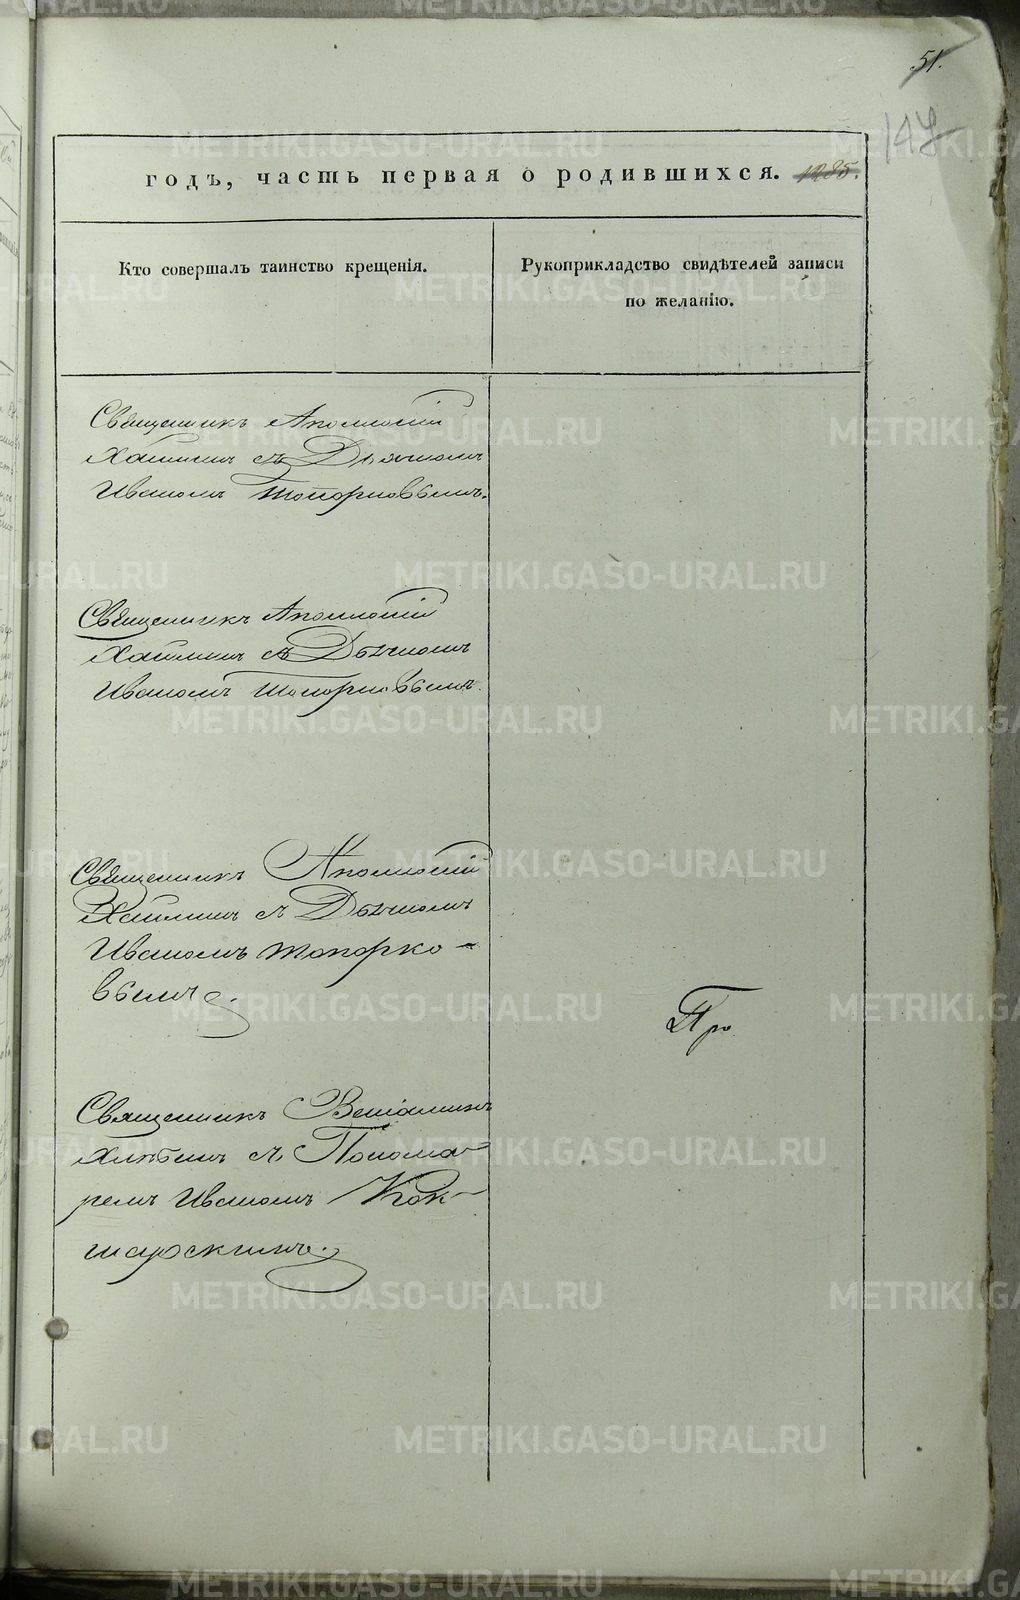 51.
147
годъ, часть первая о родившихся. 1885.
Кто совершалъ таинство крещенія.
Рукоприкладство свидѣтелей записи
по желанію.
Священникъ Аполлоній
съ Дьячкомъ
Иваномъ Топорковымъ.
Священникъ Аполлоній
съ Дьячкомъ
Иваномъ Топорковымъ.
Священникъ Аполлоній
съ Дьячкомъ
Иваномъ Топорко-
вымъ.
Пр
Священникъ Веніаминъ
съ Понома-
ремъ Иваномъ Кок-
шарскимъ.
METRIKI.GASO-URAL.RU